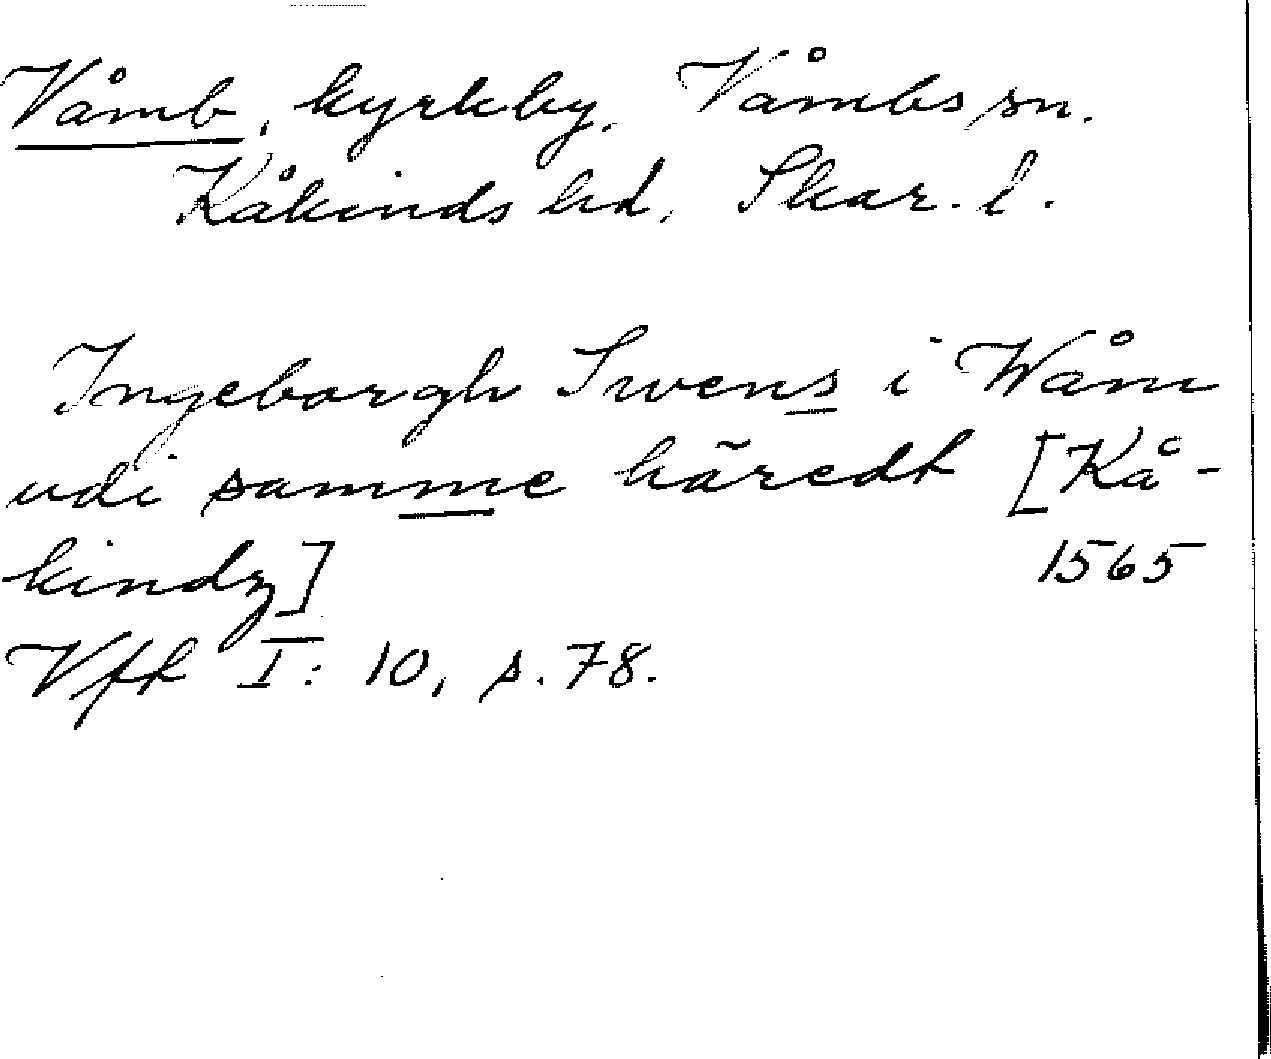 Våmb, kyrkby, Våmbs sn.
Kåkinds hd, Skar. l.
Ingeborgh Swens i Wåm
udi samme häredt [Kå-
kindz] 1565
Vfk I: 10, s. 78.